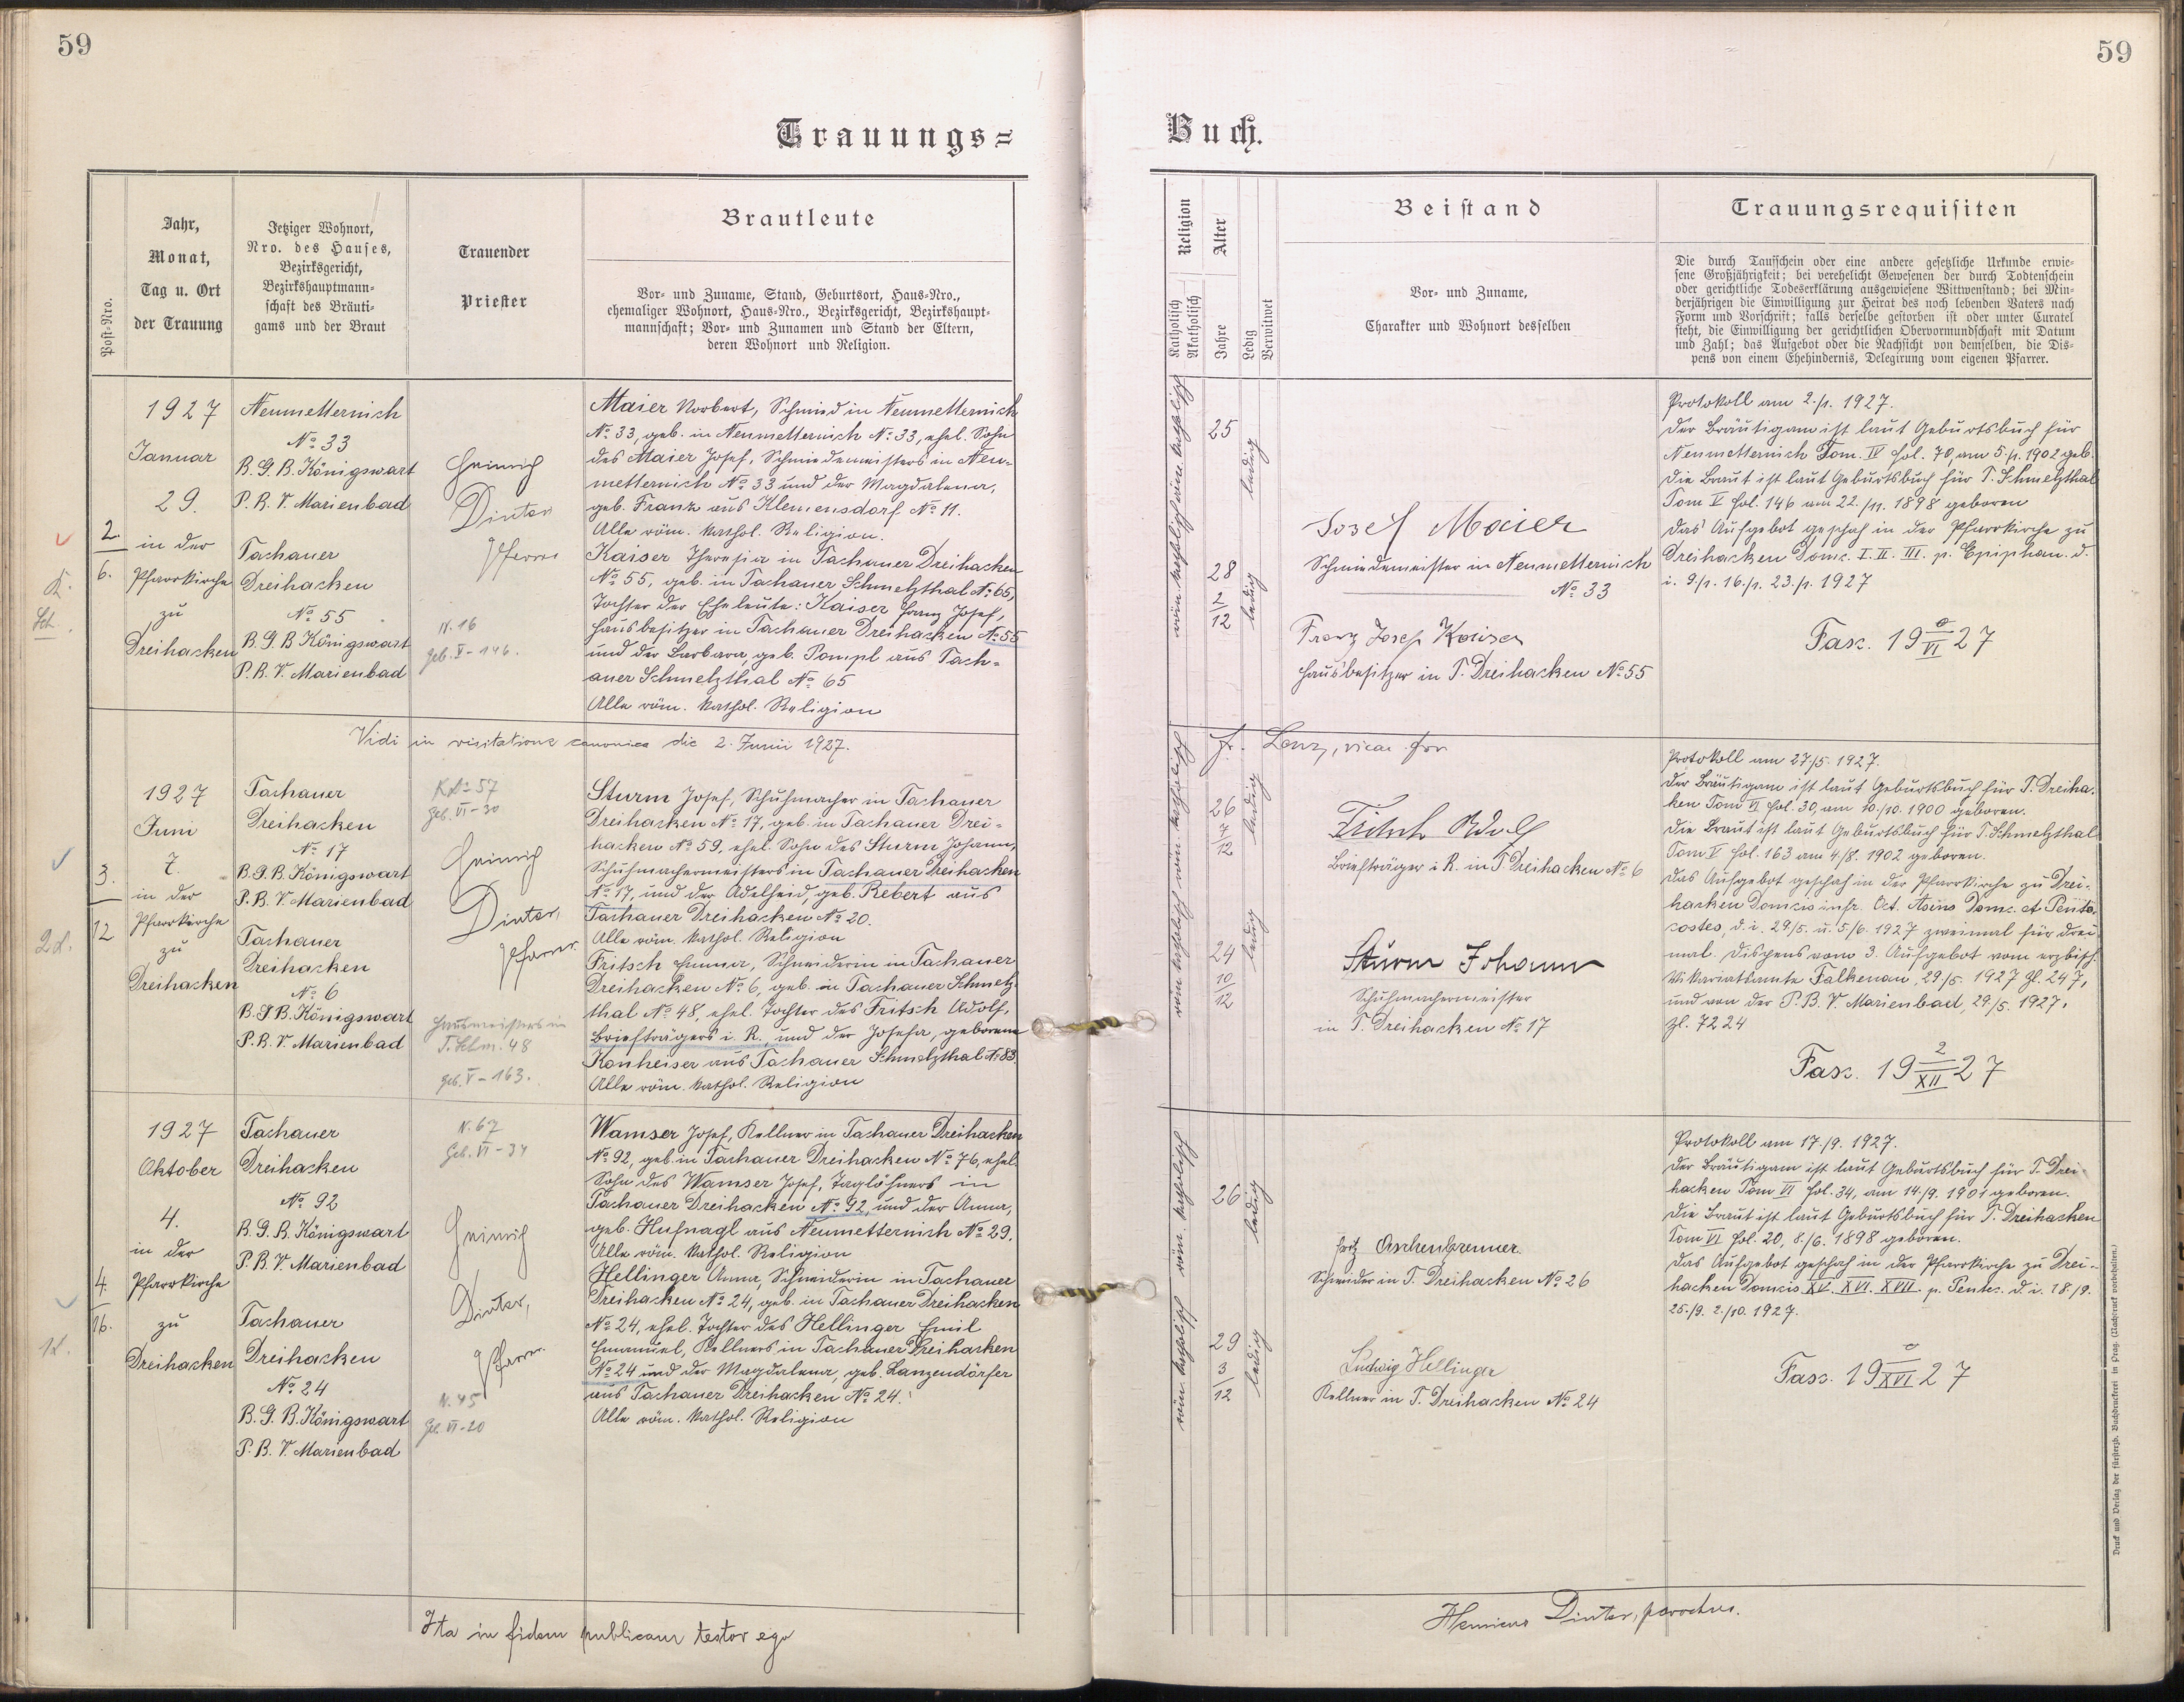 59
59
Trauungs=
Buch.
Post-Nro.
Jahr,
Monat,
Tag u. Ort
der Trauung
Jetziger Wohnort,
Nro. des Hauses,
Bezirksgericht,
Bezirkshauptmann=
schaft des Bräuti=
gams und der Braut
Trauender
Priester
Brautleute
Vor- und Zuname, Stand, Geburtsort, Haus-Nro.,
ehemaliger Wohnort, Haus-Nro., Bezirksgericht, Bezirkshaupt-
mannschaft; Vor- und Zunamen und Stand der Eltern,
deren Wohnort und Religion.
Religion
Katholisch
Akatholisch
Alter
Jahre
Ledig
Verwitwet
Beistand
Vor- und Zuname,
Charakter und Wohnort desselben
Trauungsrequisiten
Die durch Taufschein oder eine andere gesetzliche Urkunde erwie-
sene Großjährigkeit; bei verehelicht Gewesenen der durch Todtenschein
oder gerichtliche Todeserklärung ausgewiesene Wittwenstand; bei Min-
derjährigen die Einwilligung zur Heirat des noch lebenden Vaters nach
Form und Vorschrift; falls derselbe gestorben ist oder unter Curatel
steht, die Einwilligung der gerichtlichen Obervormundschaft mit Datum
und Zahl; das Aufgebot oder die Nachsicht von demselben, die Dis-
pens von einem Ehehindernis, Delegirung vom eigenen Pfarrer.
2.
6.
K.
Sch.
1927
Januar
29.
in der
Pfarrkirche
zu
Dreihacken
Neumetternich
No 33
B. G. B. Königswart
P. B. V. Marienbad
Tachauer
Dreihacken
No 55
B. G. B Königswart
P. B. V. Marienbad
Heinrich
Dinter
Pfarrer
N. 16
geb. V - 146.
Maier Norbert, Schmied in Neumetternich
No 33, geb. in Neumetternich No 33, ehel. Sohn
des Maier Josef, Schmiedemeisters in Neu-
metternich No 33 und der Magdalena,
geb. Frank aus Klemensdorf No 11.
Alle röm. kathol. Religion.
Kaiser Theresia in Tachauer Dreihacken
No 55, geb. in Tachauer Schmelzthal No 65,
Tochter der Eheleute: Kaiser Franz Josef,
Hausbesitzer in Tachauer Dreihacken No 55
und der Barbara, geb. Pompl aus Tach-
auer Schmelzthal No 65
Alle röm. kathol. Religion
röm. katholisch röm. katholisch
25
28
2/12
ledig
ledig
Josef Maier
Schmiedemeister in Neumetternich
No 33
Franz Josef Kaiser
Hausbesitzer in T. Dreihacken No 55
Protokoll am 2./1. 1927.
Der Bräutigam ist laut Geburtsbuch für
Neumetternich Tom. IV fol. 70, am 5./1. 1902 geb.
Die Braut ist laut Geburtsbuch für T. Schmelzthal
Tom V fol. 146 am 22./11. 1898 geboren
Das Aufgebot geschah in der Pfarrkirche zu
Dreihacken Domc. I. II. III. p. Epiphan. d.
i. 9./1. 16./1. 23./1. 1927
Fasc. 19 0/VI 27
Vidi in visitatione canonica die 2. Junii 1927.
Fr. Lenz, vicar. for
3.
12
2 L.
1927
Juni
7.
in der
Pfarrkirche
zu
Dreihacken
Tachauer
Dreihacken
No 17
B. G. B. Königswart
P. B. V. Marienbad
Tachauer
Dreihacken
No 6
B. G B. Königswart
P. B. V. Marienbad
57
Geb. VI - 30
Heinrich
Dinter,
Pfarrer
Hausmeisters in
T. Schm. 48
geb. V - 163.
Sturm Josef, Schuhmacher in Tachauer
Dreihacken No 17, geb. in Tachauer Drei-
hacken No 59, ehel. Sohn des Sturm Johann,
Schuhmachermeisters in Tachauer Dreihacken
No 17, und der Adelheid, geb. Rebert aus
Tachauer Dreihacken No 20.
Alle röm. kathol. Religion
Fritsch Emma, Schneiderin in Tachauer
Dreihacken No 6, geb. in Tachauer Schmelz-
thal No 48, ehel. Tochter des Fritsch Adolf,
Briefträgers i. R., und der Josefa, geborene
Konheiser aus Tachauer Schmelzthal No 83.
Alle röm. kathol. Religion
röm. katholisch röm. katholisch
26
7/12
24
10/12
ledig
ledig
Fritsch Adolf
Briefträger i. R. in T Dreihacken No 6
Sturm Johann
Schuhmachermeister
in T. Dreihacken No 17
Protokoll am 27/5. 1927.
Der Bräutigam ist laut Geburtsbuch für T. Dreiha-
ken Tom VI fol. 30, am 10./10. 1900 geboren.
Die Braut ist laut Geburtsbuch für T. Schmelzthal
Tom V fol. 163 am 4/8. 1902 geboren.
Das Aufgebot geschah in der Pfarrkirche zu Drei-
hacken Domcis infr. Oct. Asens Domc. et Pente-
costes, d. i. 29./5. u. 5/6. 1927 zweimal für drei
mal. Dispens vom 3. Aufgebot vom erzbisch.
Vikariatsamte Falkenau, 29/5. 1927 Zl. 247,
und von der P. B. V. Marienbad, 29./5. 1927,
Zl. 7224
Fasc. 19 2/XII 27
4.
16.
1 L.
1927
Oktober
4.
in der
Pfarrkirche
zu
Dreihacken
Tachauer
Dreihacken
No 92
B. G. B. Königswart
P. B. V. Marienbad
Tachauer
Dreihacken
No 24
B. G. B. Königswart
P. B. V. Marienbad
N. 67
Geb. VI - 34
Heinrich
Dinter,
Pfarrer
N. 45
Geb. VI - 20
Wamser Josef, Kellner in Tachauer Dreihacken
No 92, geb. in Tachauer Dreihacken No 76, ehel.
Sohn des Wamser Josef, Taglöhners in
Tachauer Dreihacken No 92, und der Anna,
geb. Hufnagl aus Neumetternich No 29.
Alle röm. kathol. Religion
Hellinger Anna, Schneiderin in Tachauer
Dreihacken No 24, geb. in Tachauer Dreihacken
No 24, ehel. Tochter des Hellinger Emil
Emanuel, Kellners in Tachauer Dreihacken
No 24 und der Magdalena, geb. Lanzendörfer
aus Tachauer Dreihacken No 24.
Alle röm. kathol. Religion
röm. katholisch röm. katholisch
26
29
3/12
ledig
ledig
Fritz Aschenbrenner.
Schneider in T. Dreihacken No 26
Ludwig Hellinger
Kellner in T. Dreihacken No 24
Protokoll am 17./9. 1927.
Der Bräutigam ist laut Geburtsbuch für T. Drei-
hacken Tom VI fol. 34, am 14./9. 1901 geboren.
Die Braut ist laut Geburtsbuch für T. Dreihacken
Tom VI fol. 20, 8./6. 1898 geboren.
Das Aufgebot geschah in der Pfarrkirche zu Drei-
hacken Domcis XV. XVI. XVII. p. Pentec. d. i. 18./9.
25./9. 2./10. 1927.
Fasc. 19 0/XVI 27
Ita in fidem publicam testor ego
Henricus Dinter, parochus.
Druck und Verlag der fürsterzb. Buchdruckerei in Prag. (Nachdruck vorbehalten.)